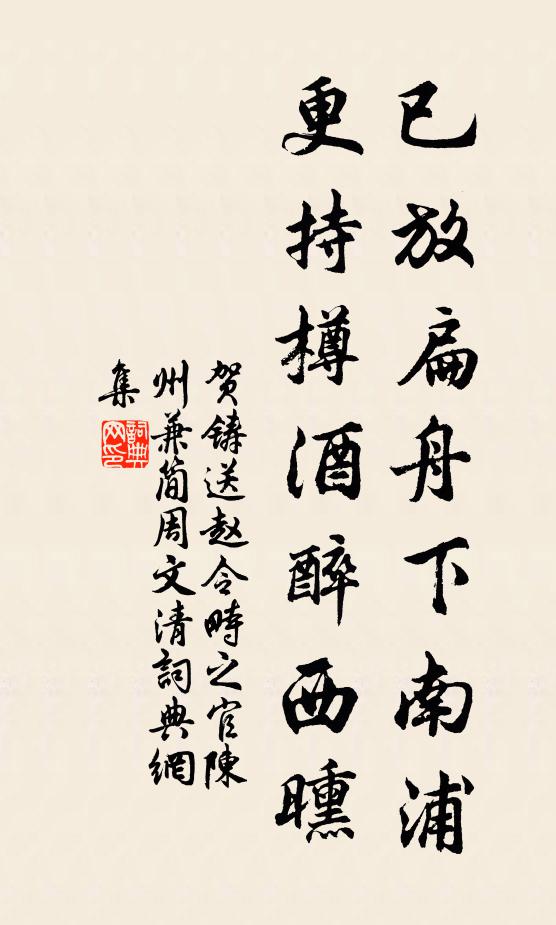 已放扁舟下南浦
更持樽酒醉西曛
賀鑄送赵令畤之官陳
州兼简周文清詞典網
集
詞典
网印